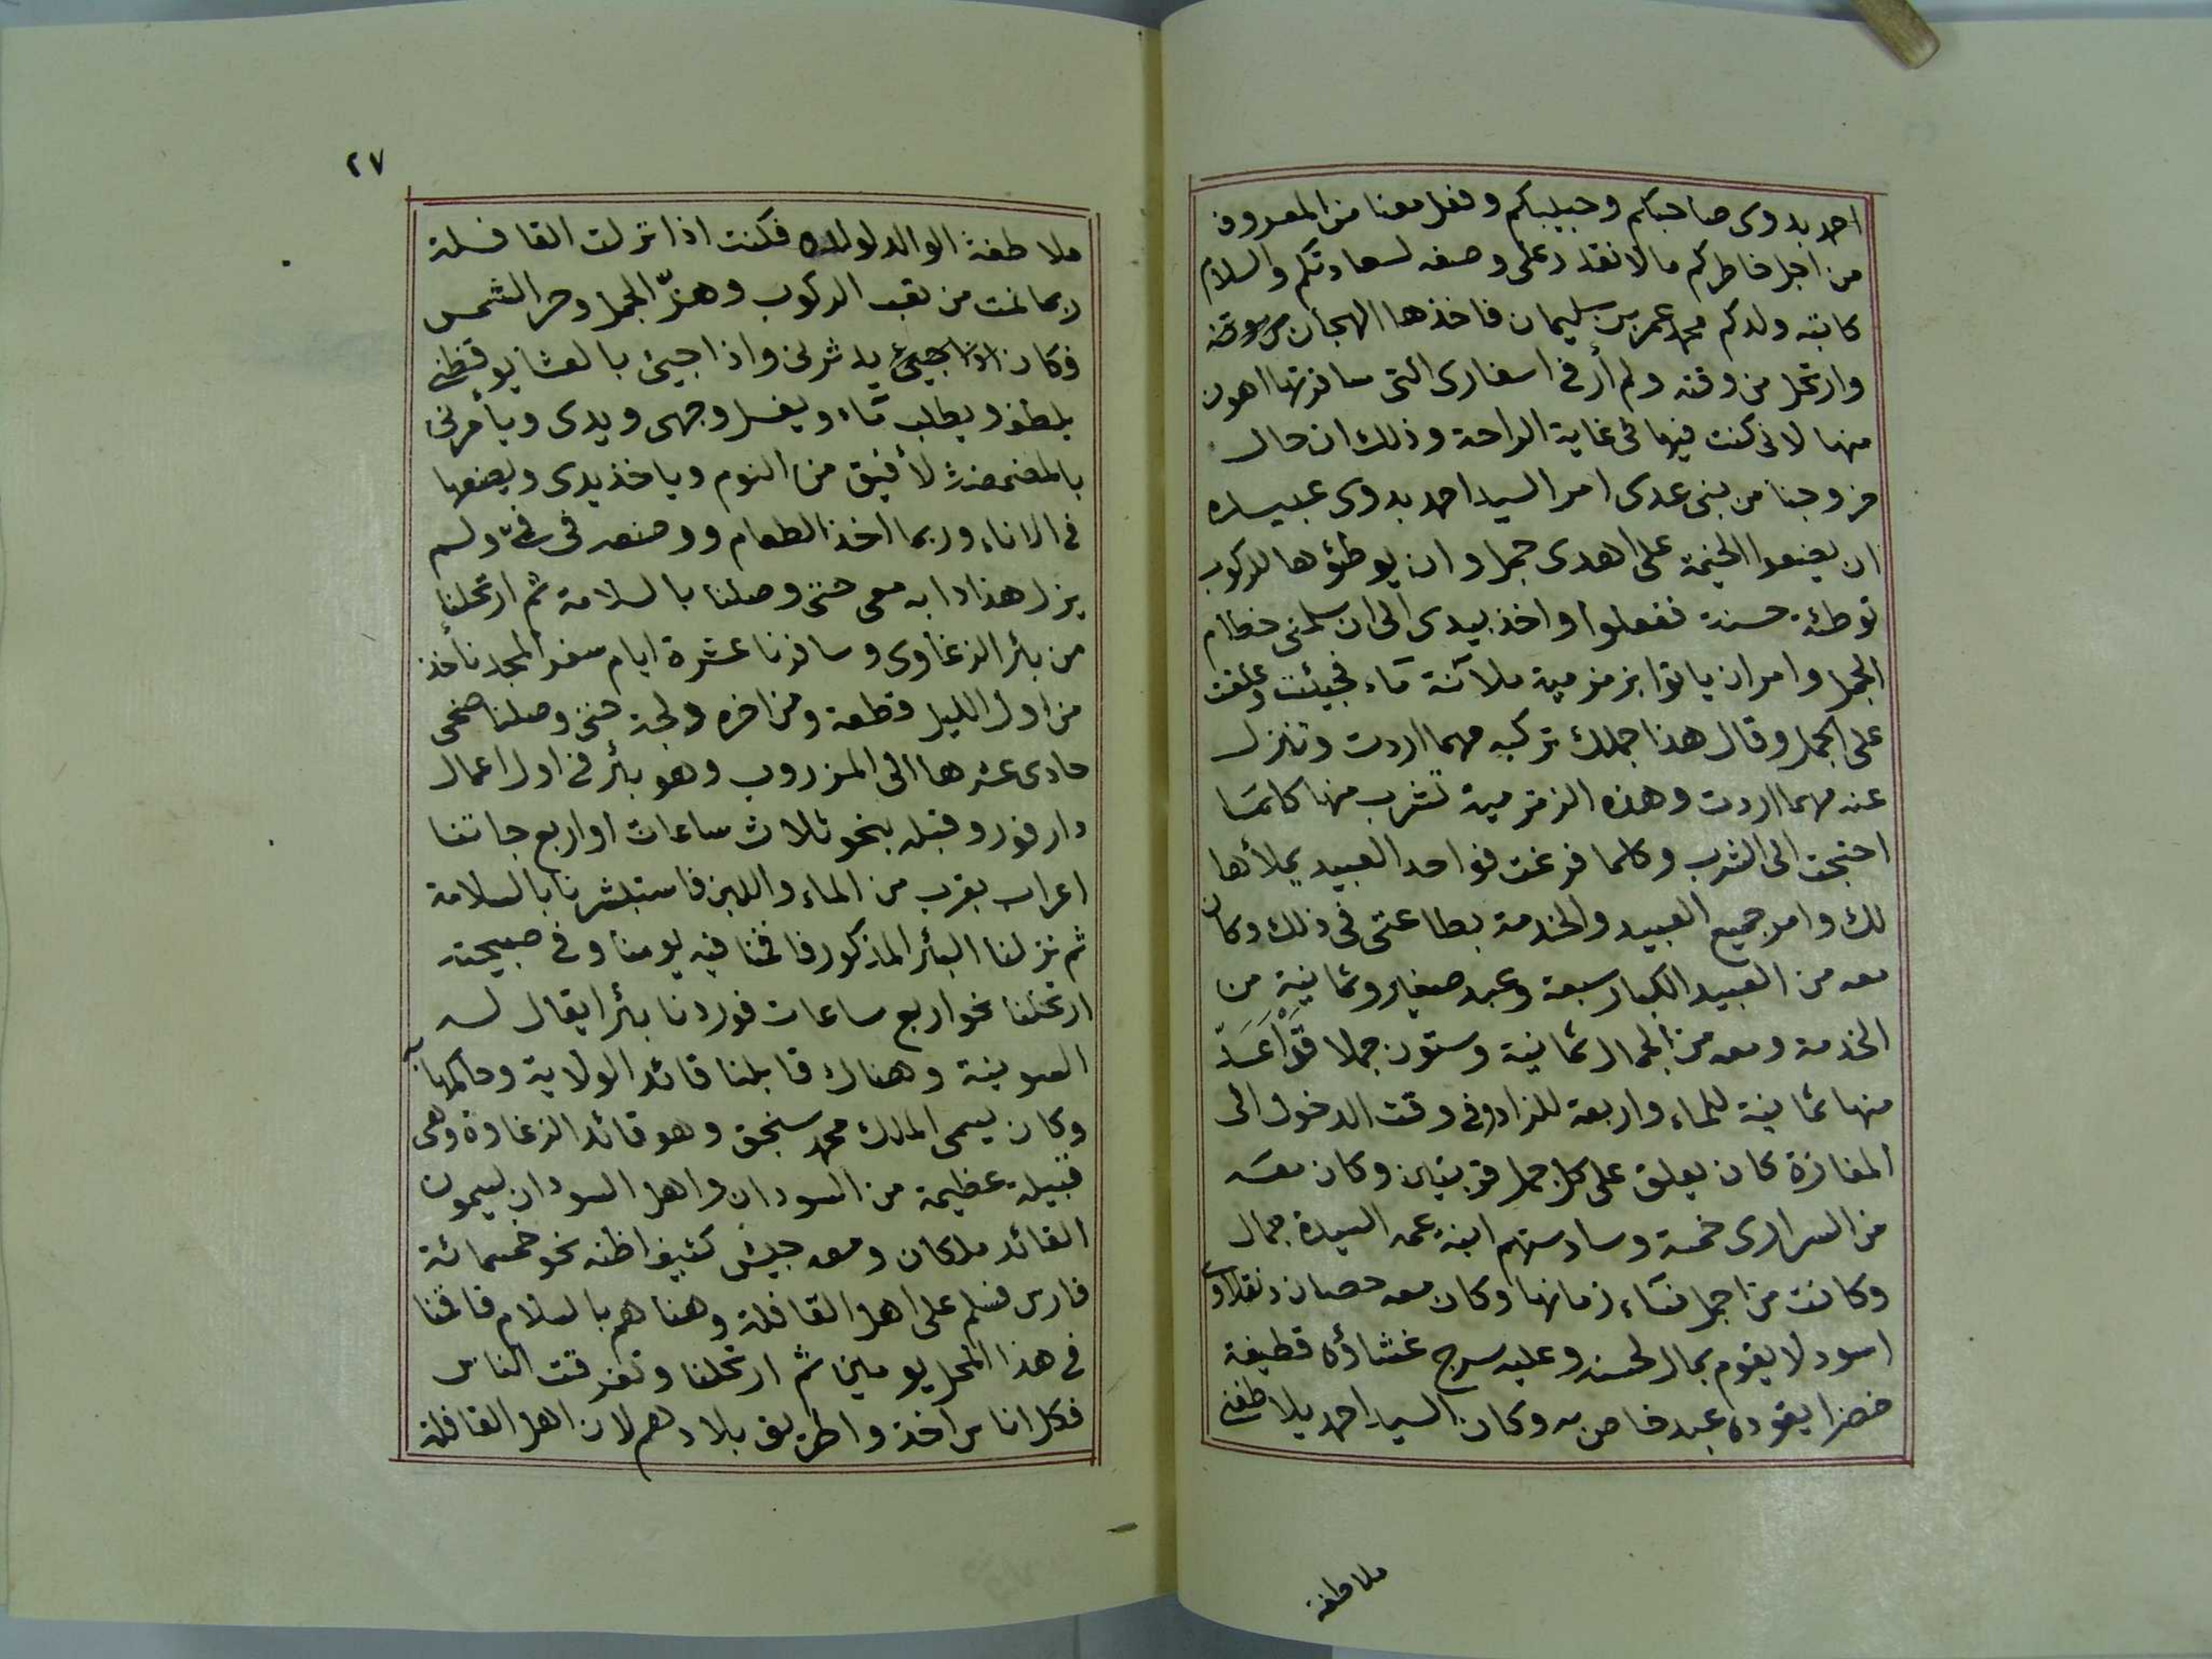 احمد بدوى صاحبكم وحبيبكم وفعل معنا من المعروف
من اجل خاطركم ما لا نقدر على وصفه لسعادتكم والسلام
كاتبه ولدكم محمد عمر بن سليمان فاخذها الهجان من وقته
وارتحل من وقته ولم أر فى اسفارى التى سافرتها اهون
منها لانى كنت فيها فى غاية الراحة وذلك ان حال
خروجنا من بنى عدى امر السيد احمد بدوى عبيده
ان يضعوا الخيمة على اهدى جمل وان يوطؤها للركوب
توطئة حسنة ففعلوا واخذ بيدى الى ان سلمنى خطام
الجمل وامر ان ياتوا بزمزمية ملآنة ماء فجيئت وعلقت
على الجمل وقال هذا جملك تركبه مهما اردت وتنزل
عنه مهما اردت وهذه الزمزمية تشرب منها كلما
احتجت الى الشرب وكلما فرغت فواحد العبيد يملأها
لك وامر جميع العبيد والخدمة بطاعتى فى ذلك وكان
معه من العبيد الكبار سبعة وعبد صغير وثمانية من
الخدمة ومعه من الجمال ثمانية وستون جملا قد أعدّ
منها ثمانية للماء واربعة للزاد وفى وقت الدخول الى
المفازة كان يعلق على كل جمل قربتين وكان معه
من السرارى خمسة وسادستهم ابنة عمه السيدة جمال
وكانت من اجمل نساء زمانها وكان معه حصان دنقلاوى
اسود لا يقوم بمال لحسنه وعليه سرج غشاؤه قطيفة
خضرا يقوده عبد خاص به وكان السيد احمد يلاطفنى
ملاطفة
٢٧
ملاطفة الوالد لولده فكنت اذا نزلت القافلة
ربما نمت من تعب الركوب وهزّ الجمل وحر الشمس
فكان اذا جيئ يدثرنى واذا جيئ بالعشا يوقظنى
بلطف ويطلب ماء ويغسل وجهى ويدى ويأمرنى
بالمضمضة لأفيق من النوم وياخذ يدى ويضعها
فى الاناء وربما اخذ الطعام ووضعه فى فىّ ولم
يزل هذا دابه معى حتى وصلنا بالسلامة ثم ارتحلنا
من بئر الزغاوى وسافرنا عشرة ايام سفر المجد نأخذ
من اول الليل قطعة ومن اخره دلجة حتى وصلنا ضحى
حادى عشرها الى المزروب وهو بئر فى اول اعمال
دارفور وقبله بنحو ثلاث ساعات او اربع جاتنا
اعراب بقرب من الماء واللبن فاستبشرنا بالسلامة
ثم نزلنا البئر المذكور فاقمنا فيه يومنا وفى صبيحته
ارتحلنا نحو اربع ساعات فوردنا بئرا يقال له
السوينة وهناك قابلنا قائد الولاية وحاكمها
وكان يسمى الملك محمد سنجق وهو قائد الزغاوة وهى
قبيلة عظيمة من السودان واهل السودان يسمون
القائد ملكان ومعه جيش كثيف اظنه نحو خمسمائة
فارس فسلم على اهل القافلة وهناهم بالسلام فاقمنا
فى هذا المحل يومين ثم ارتحلنا وتفرقت الناس
فكل اناس اخذوا طريق بلادهم لان اهل القافلة